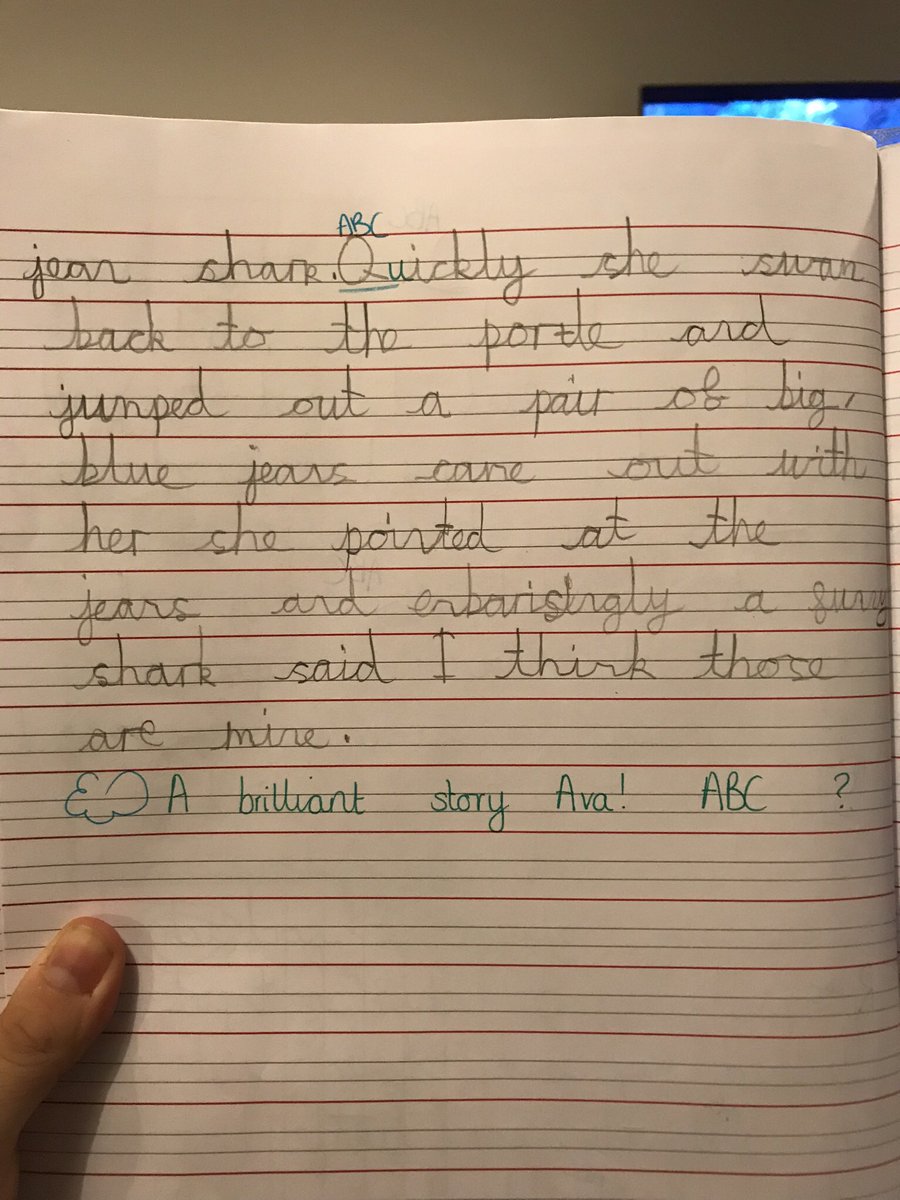 ABC
jean shark. Quickly she swam
back to the portle and
jumped out a pair of big,
blue jeans came out with
her she pointed at the
jeans and embarisingly a funny
shark said I think those
are mine.
A brilliant story Ava! ABC ?